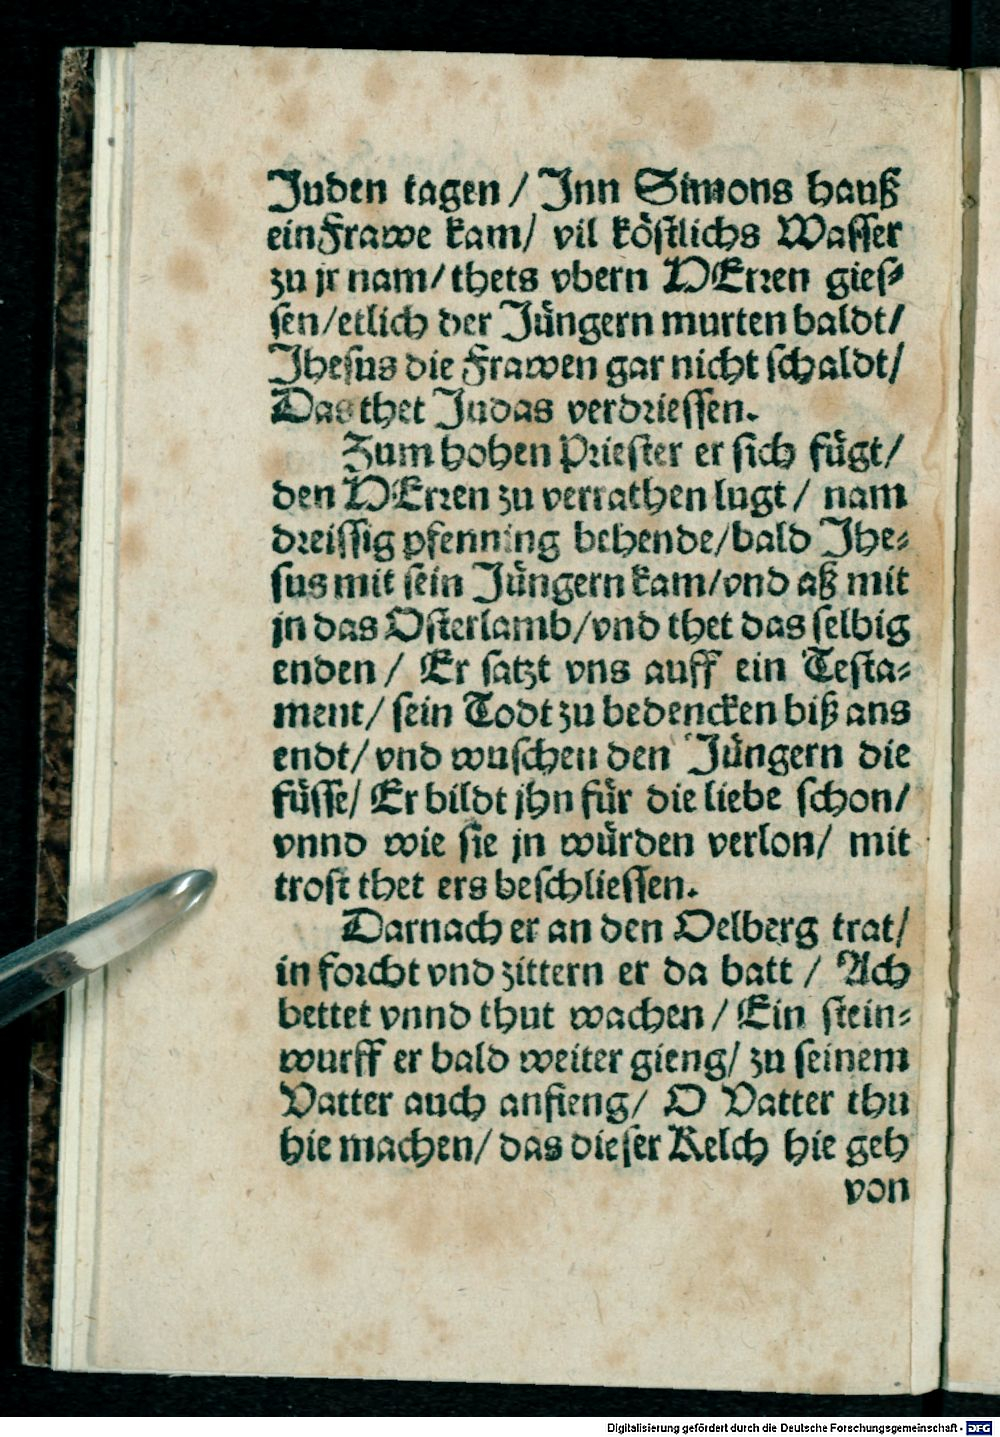 Juden tagen / Jnn Simons hauß
ein Frawe kam/ vil köstlichs Wasser
zu jr nam/ thets vbern HErren gies-
sen/ etlich der Jüngern murten baldt/
Jhesus die Frawen gar nicht schaldt/
Das thet Judas verdriessen.
Zum hohen Priester er sich fügt/
den HErren zu verrathen lugt / nam
dreissig pfenning behende/ bald Jhe-
sus mit sein Jüngern kam/ vnd aß mit
jn das Osterlamb/ vnd thet das selbig
enden / Er satzt vns auff ein Testa-
ment/ sein Todt zu bedencken biß ans
endt/ vnd wuschen den Jüngern die
füsse/ Er bildt jhn für die liebe schon/
vnnd wie sie jn würden verlon/ mit
trost thet ers beschliessen.
Darnach er an den Oelberg trat/
in forcht vnd zittern er da batt / Ach
bettet vnnd thut wachen / Ein stein-
wurff er bald weiter gieng/ zu seinem
Vatter auch anfieng/ O Vatter thu
hie machen/ das dieser Kelch hie geh
von
Digitalisierung gefördert durch die Deutsche Forschungsgemeinschaft - DFG